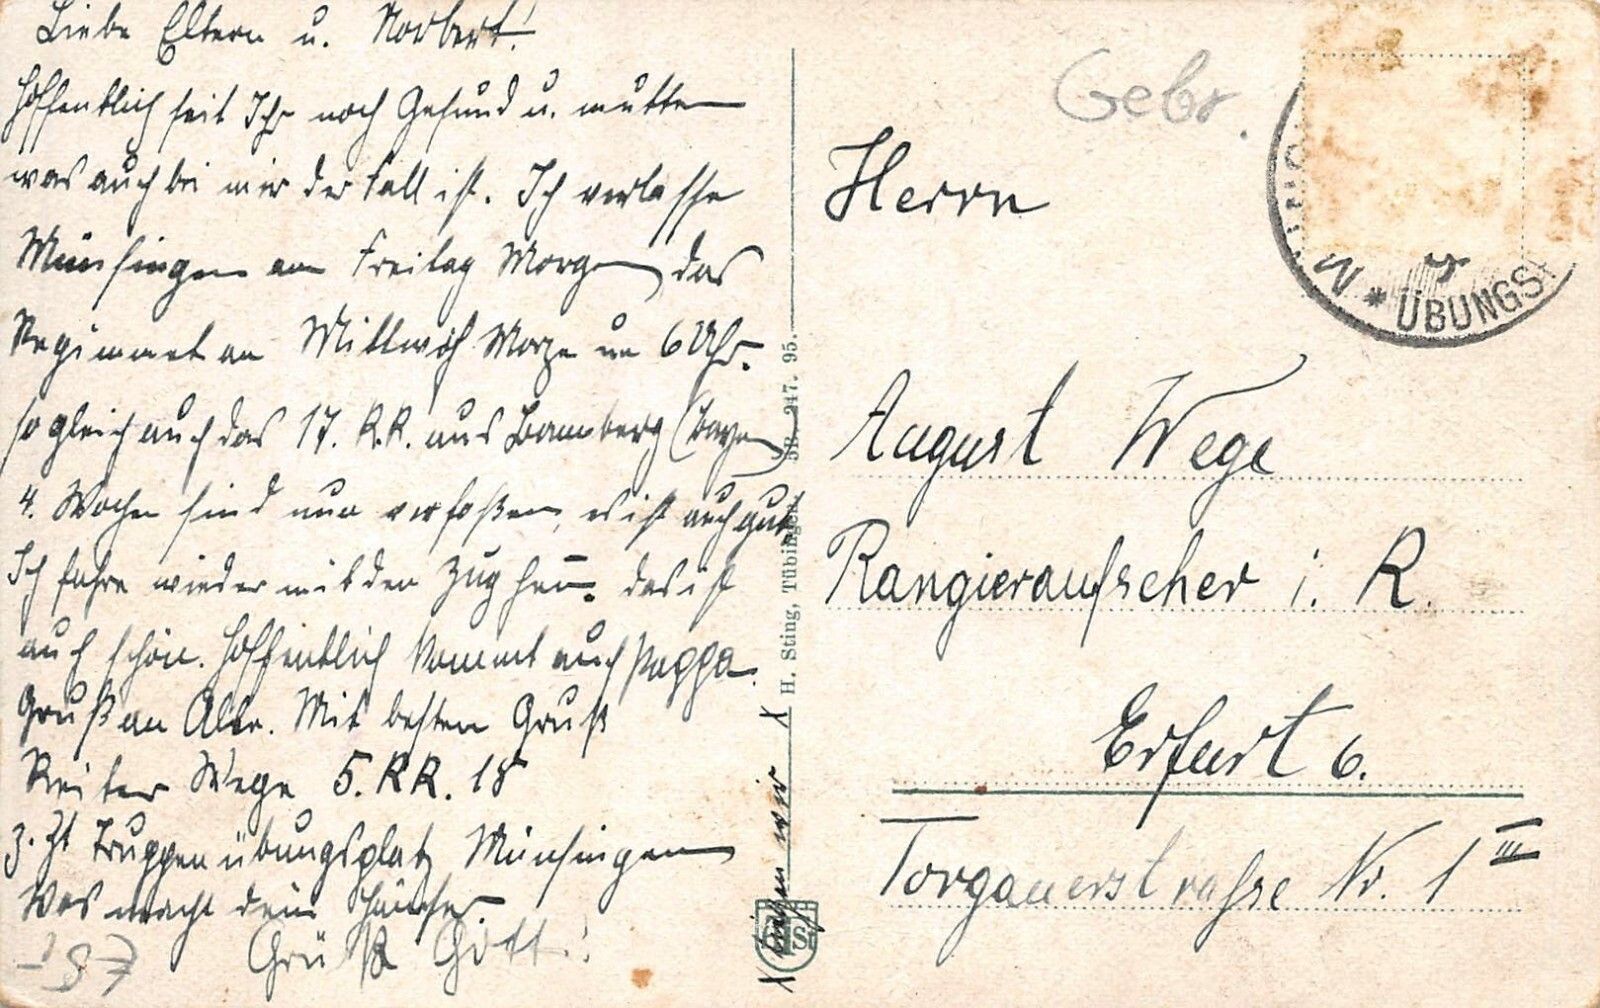 Liebe Eltern u. Norbert!
Hoffentlich seit Ihr noch Gesund u. mutter
was auch bei mir der Fall ist. Ich verlasse
Münsingen am Freitag Morgen, das
Regiment an Mittwoch Morgen um 6 Uhr.
sogleich auch das 17. R.R. aus Bamberg (Bayern)
4. Wochen sind nun verfloßen, es ist auch gut.
Ich fahre wieder mit den Zug heim. das ist
auch schön. Hoffentlich kommt auch Pappa.
Gruß an Alle. Mit besten Gruß
Reiter Wege 5. R.R. 18
z. Zt Truppenübungsplatz Münsingen
Was macht dein
Grüß Gott!
X wir X
H. Sting, Tübingen. 247. 95.
Gebr.
M * ÜBUNGS
Herrn
August Wege
Rangieraufseher i. R.
Erfurt 6.
Torgauerstrasse Nr. 1 III